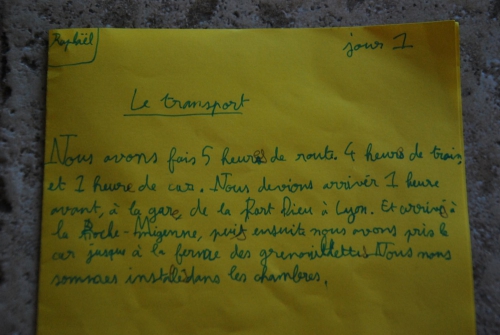 Raphaël
jours 1
Le transport
Nous avons fais 5 heures de route. 4 heures de train,
et 1 heure de car. Nous devions arriver 1 heure
avant, à la gare, de la Part Dieu à Lyon. Et arrivé à
la Roche-Migenne, puis ensuite nous avons pris le
car jusque à la ferme des grenouillettes. Nous nous
sommes installés dans les chambres.